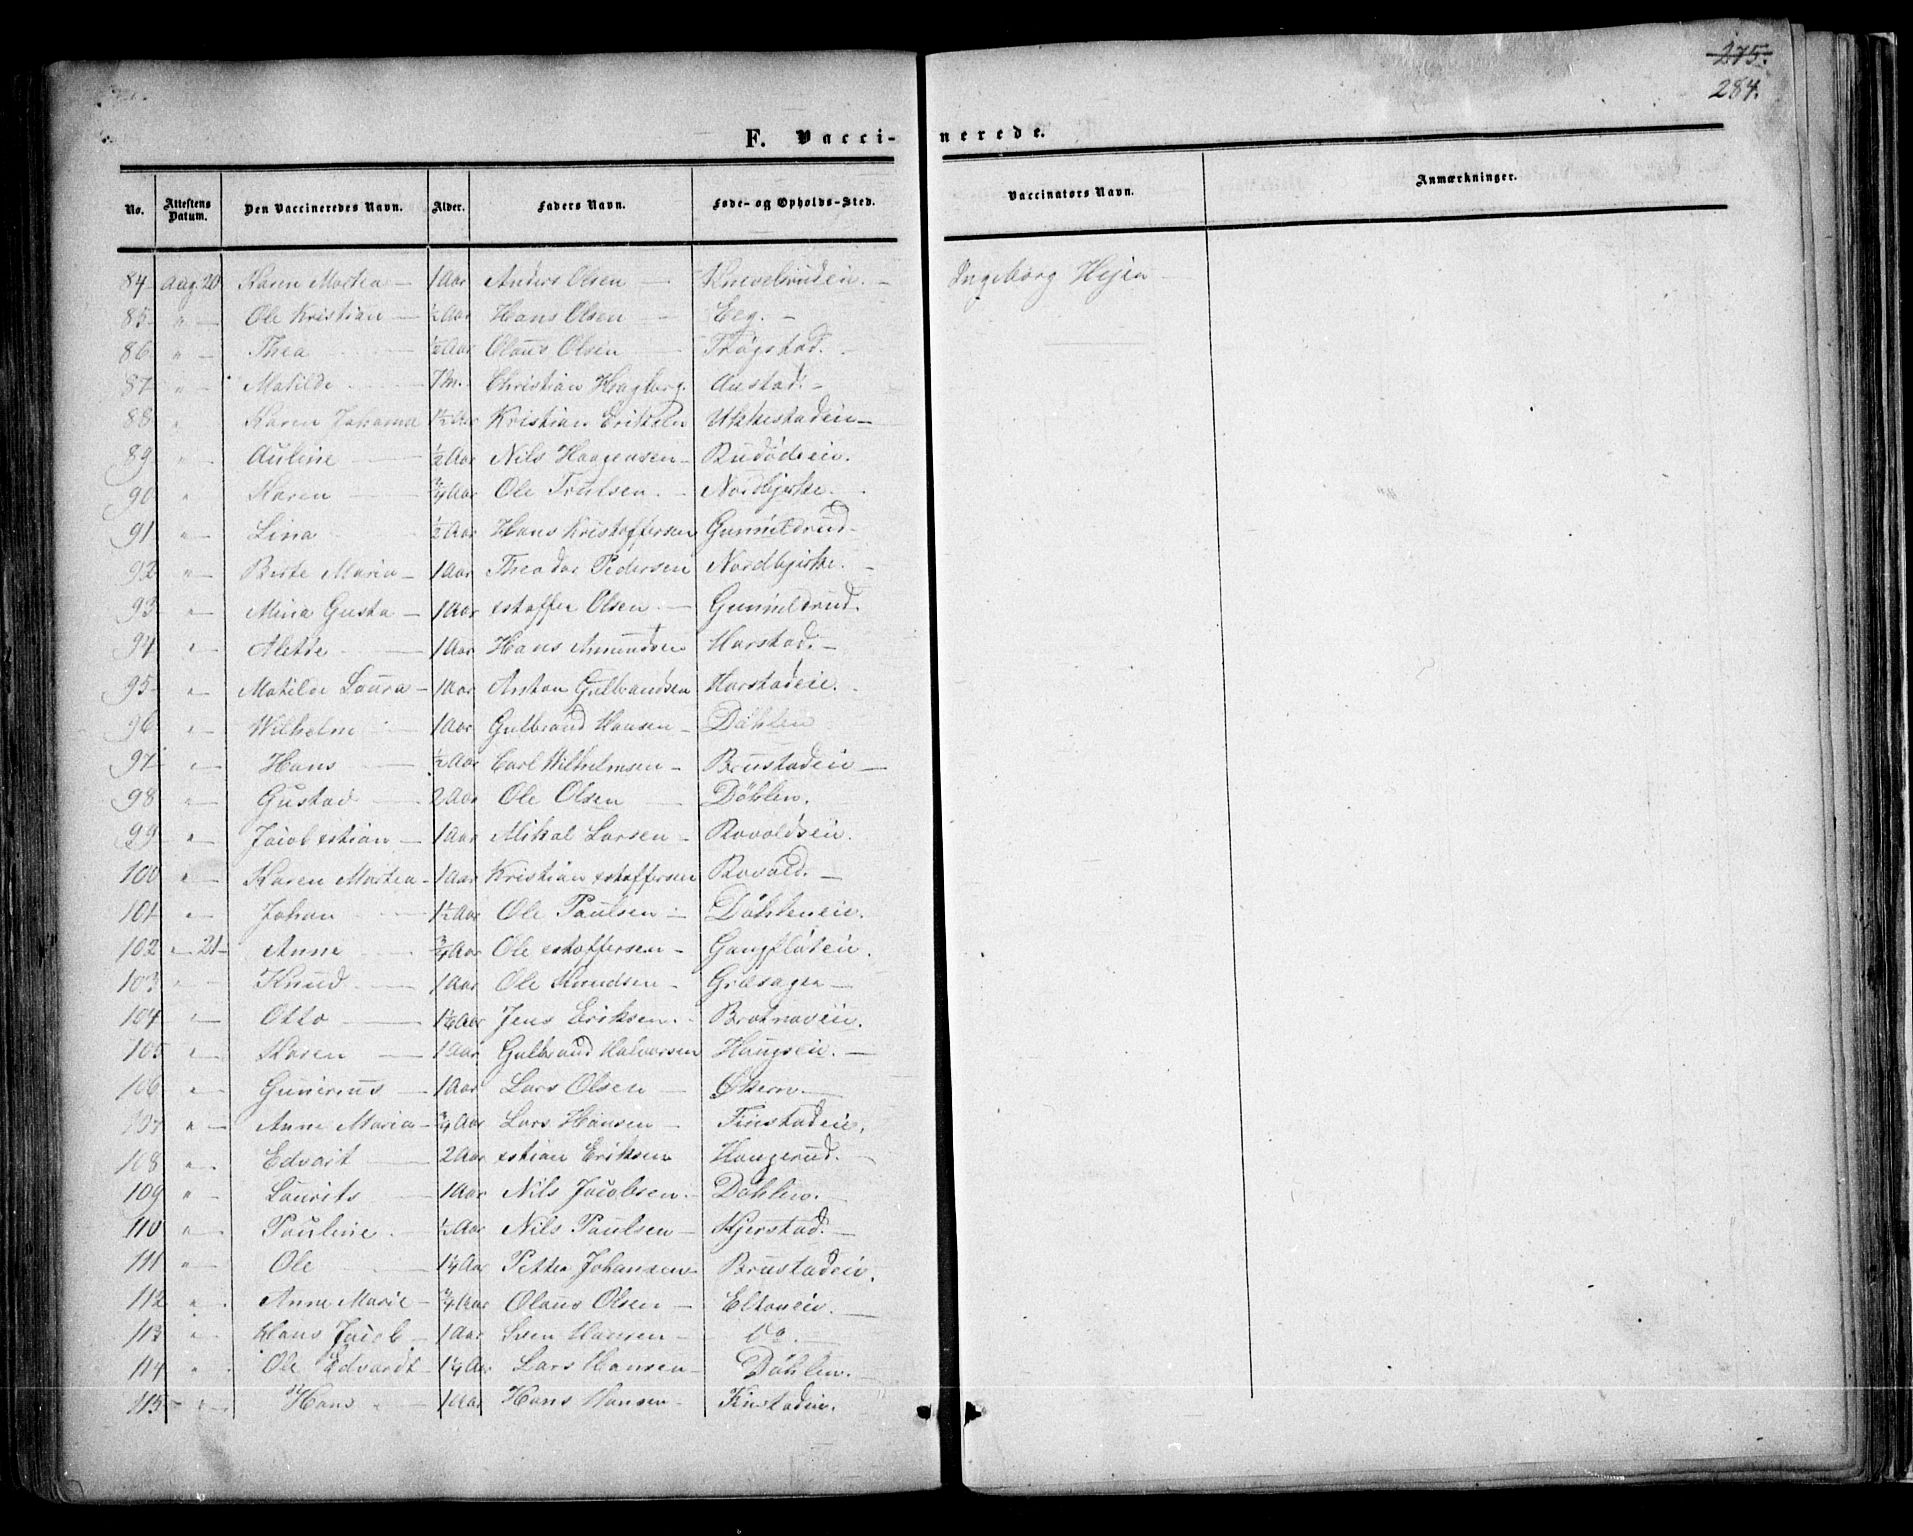 275.
284.
F. Vaccinerede.
No. Attestens Datum. Den Vaccineredes Navn. Alder. Faders Navn. Føde- og Opholds-Sted. Vaccinators Navn. Anmærkninger.
84 Aug. 20 Karen Martea 1 Aar Anders Olsen Knevelsrudeie. Ingeborg Hejea
85 " Ole Kristian ½ Aar Hans Olsen Eeg.
86 " Thea ½ Aar Olaus Olsen Trøgstad.
87 " Matilde 7 M. Christian Haagberg. Austad.
88 " Karen Johanna 1½ Aar Kristian Eriksen Ukkestadeie
89 " Auline ½ Aar Nils Haagensen Rudødeeie.
90 " Karen ¾ Aar Ole Trulsen. Nordbyirke.
91 " Lina ½ Aar Hans Kristoffersen Gunnildrud
92 " Berte Maria 1 Aar Theodor Pedersen Nordbyirke.
93 " Mina Gusta 1 Aar xstoffer Olsen Gunnildrud.
94 " Alette 1 Aar Hans Amundsen Harstad.
95 " Matilde Laura 1 Aar Anton Gulbrandsen Harstadeie.
96 " Wilhelm 1 Aar Gulbrand Hansen Døhlen
97 " Hans ½ Aar Carl Wilhelmsen Brustadeie
98 " Gustad 2 Aar Ole Olsen Døhlen.
99 " Jacob xstian 1 Aar Mikal Larsen Rovoldseie.
100 " Karen Martea 1 Aar Kristian xstoffersen Rovold.
101 " Johan 1½ Aar Ole Paulsen Døhleneie.
102 " 21 Anne ¾ Aar Ole xstoffersen Gangfløteie.
103 " Knud 1 Aar Ole Knudsen Græsager
104 " Otto Jens Eriksen. Brotnoveie.
105 " Karen 1 Aar Gulbrand Halvorsen Haugseie.
106 " Gunerius 1 Aar Lars Olsen Økern
107 " Anne Maria ¾ Aar Lars Hansen Finstadeie.
108 " Edvart 2 Aar xstian Eriksen Haugerud.
109 " Laurits 1 Aar Nils Jacobsen. Døhlen.
110 " Pauline. ½ Aar Nils Paulsen Kjerstad.
111 " Ole 1¼ Aar Petter Johansen Brustadeie.
112 " Anne Marie ¾ Aar Olaus Olsen Eltoneie.
113 " Hans Jacob 1 Aar Sven Hansen Do.
114 " Ole Edvardt 1¼ Aar Lars Hansen Døhlen.
115 " Hans 1 Aar Hans Hansen Finstadeie.